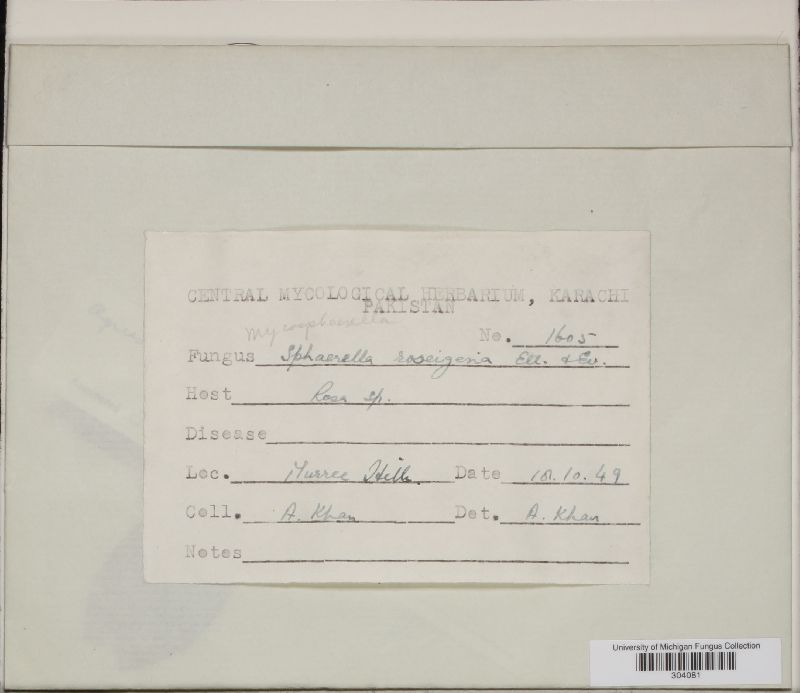 CENTRAL MYCOLOGICAL HERBARIUM, KARACHI
PAKISTAN
Mycosphaerella
No. 1605
Fungus Sphaerella roseigena Ell. & Ev.
Host Rosa sp.
Disease
Loc. Murree Hills. Date 18.10.49
Coll. A. Khan Det. A. Khan
Notes
University of Michigan Fungus Collection
304081